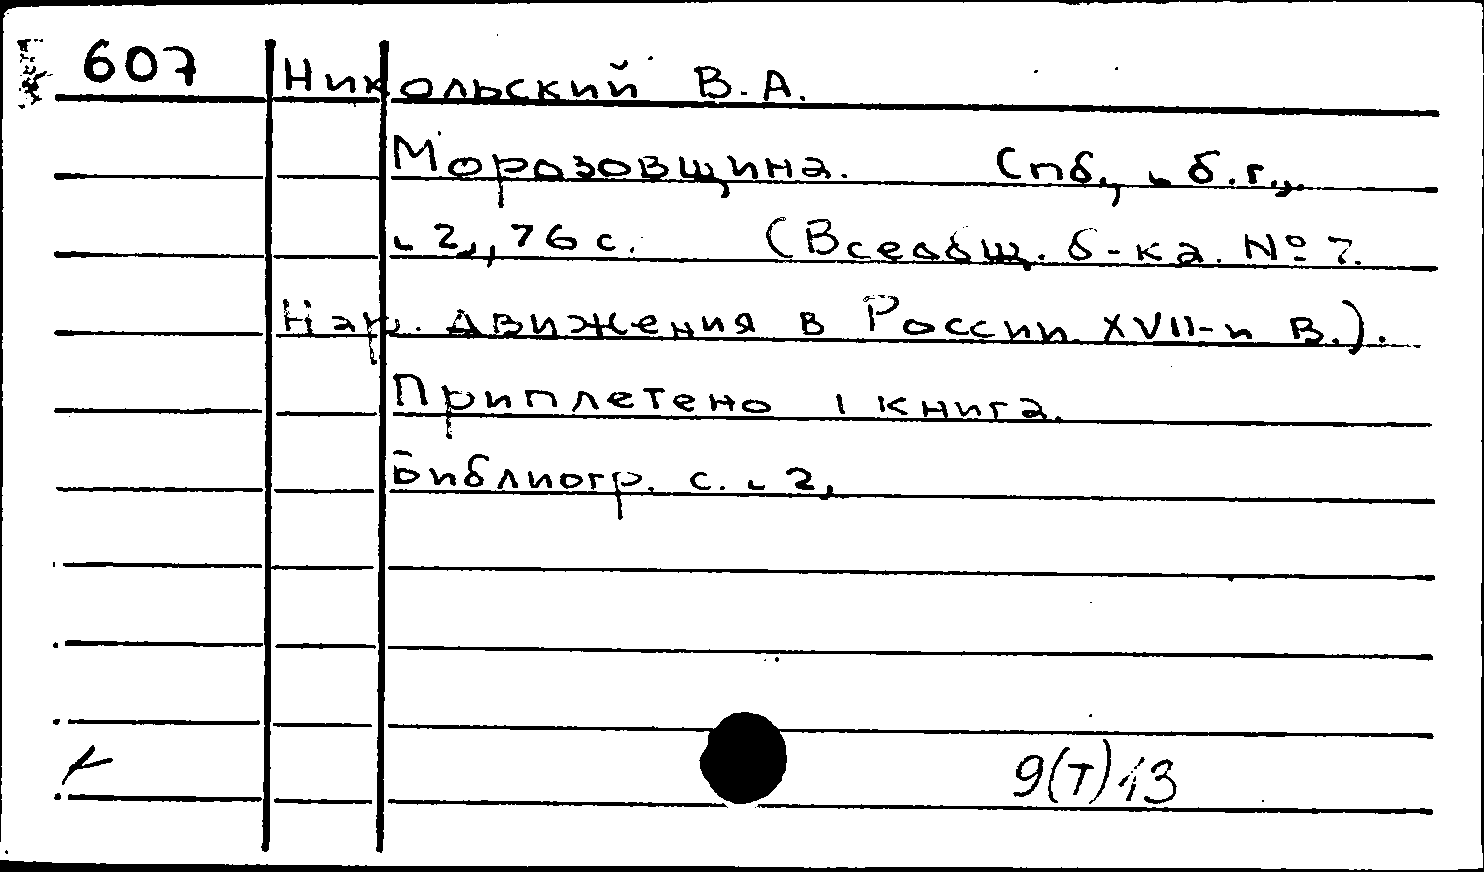 607 Никольский В.А.
Морозовщина. Спб., [б.г.],
[2], 76 с. (Всеобщ. б-ка. № 7.
Нар. движения в России XVII-и в.).
Приплетено 1 книга.
Библиогр. с. [2]
9(Т)13